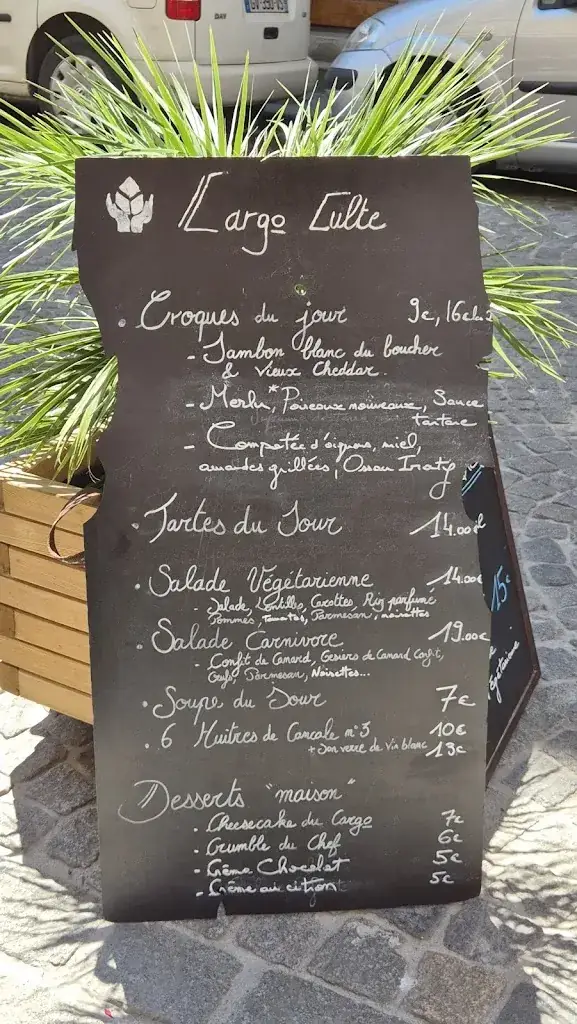 Cargo Culte
• Croques du jour 9€, 16€ les 2
- Jambon blanc du boucher
& vieux Cheddar.
- Merlu*, Poireaux nouveaux, Sauce
tartare
- Compotée d'oignons, miel,
amandes grillées, Ossau Iraty
• Tartes du Jour 14.00€
• Salade Végétarienne 14.00€
- Salade, Lentilles, Carottes, Riz parfumé
Pommes, Tomates, Parmesan, noisettes
• Salade Carnivore 19.00€
- Confit de Canard, Gesiers de Canard Confit,
Oeufs, Parmesan, Noisettes...
• Soupe du Jour 7€
• 6 Huitres de Cancale n°3 10€
+ Son verre de vin blanc 13€
Desserts "maison"
- Cheesecake du Cargo 7€
- Crumble du Chef 6€
- Crème Chocolat 5€
- Crème au citron 5€
15€